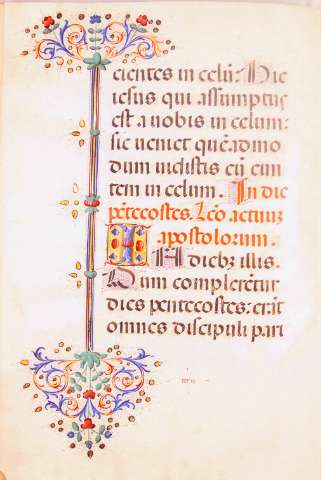 cientes in celū: Hic
iesus qui assumptus
est a uobis in celum:
sic ueniet quēadmo
dum uidistis eū eun
tem in celum. In die
pētecostes. Lc̄o actuū
apostolorum.
IN diebꝫ illis.
Dum complerētur
dies pentecostes: erāt
omnes discipuli pari